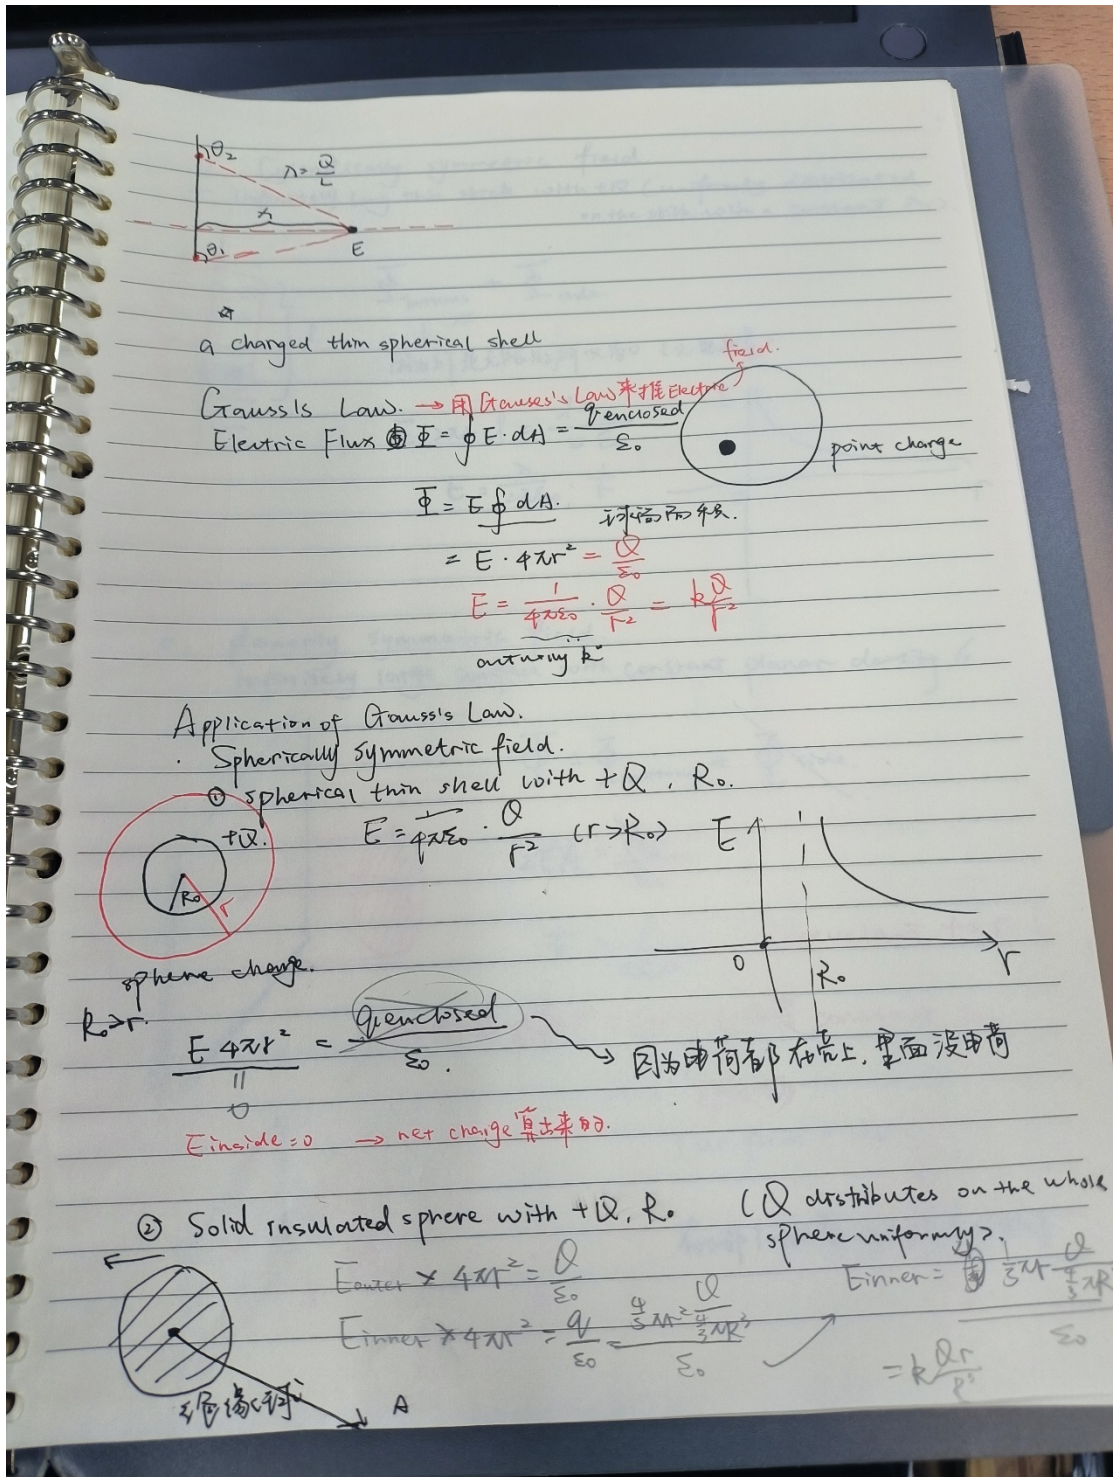 θ₂
λ = Q/L
r
θ₁
E
a charged thin spherical shell
field.
Gauss's Law. → 用 Gauses's Law 来推 Electric
Electric Flux Φ = ∮E·dA = q enclosed / ε₀
point charge
Φ = E ∮ dA. 球的面积.
= E · 4πr² = Q/ε₀
E = 1/4πε₀ · Q/r² = k Q/r²
k
Application of Gauss's Law.
· Spherically symmetric field.
① spherical thin shell with +Q, R₀.
+Q.
E = 1/4πε₀ · Q/r² (r>R₀)
E
R₀
r
0
R₀
r
sphere charge.
R₀>r.
E 4πr² = q enclosed / ε₀.
因为电荷都在壳上, 里面没电荷
=
0
E inside = 0 → net charge 算出来的.
② Solid insulated sphere with +Q, R₀. (Q distributes on the whole
sphere uniformly).
E outer × 4πr² = Q/ε₀
E inner = 1/3 πr Q / 4/3 πR³ / ε₀
E inner × 4πr² = q/ε₀ = 4/3 πr² Q / 4/3 πR³ / ε₀
= k Qr/R³
绝缘球
A